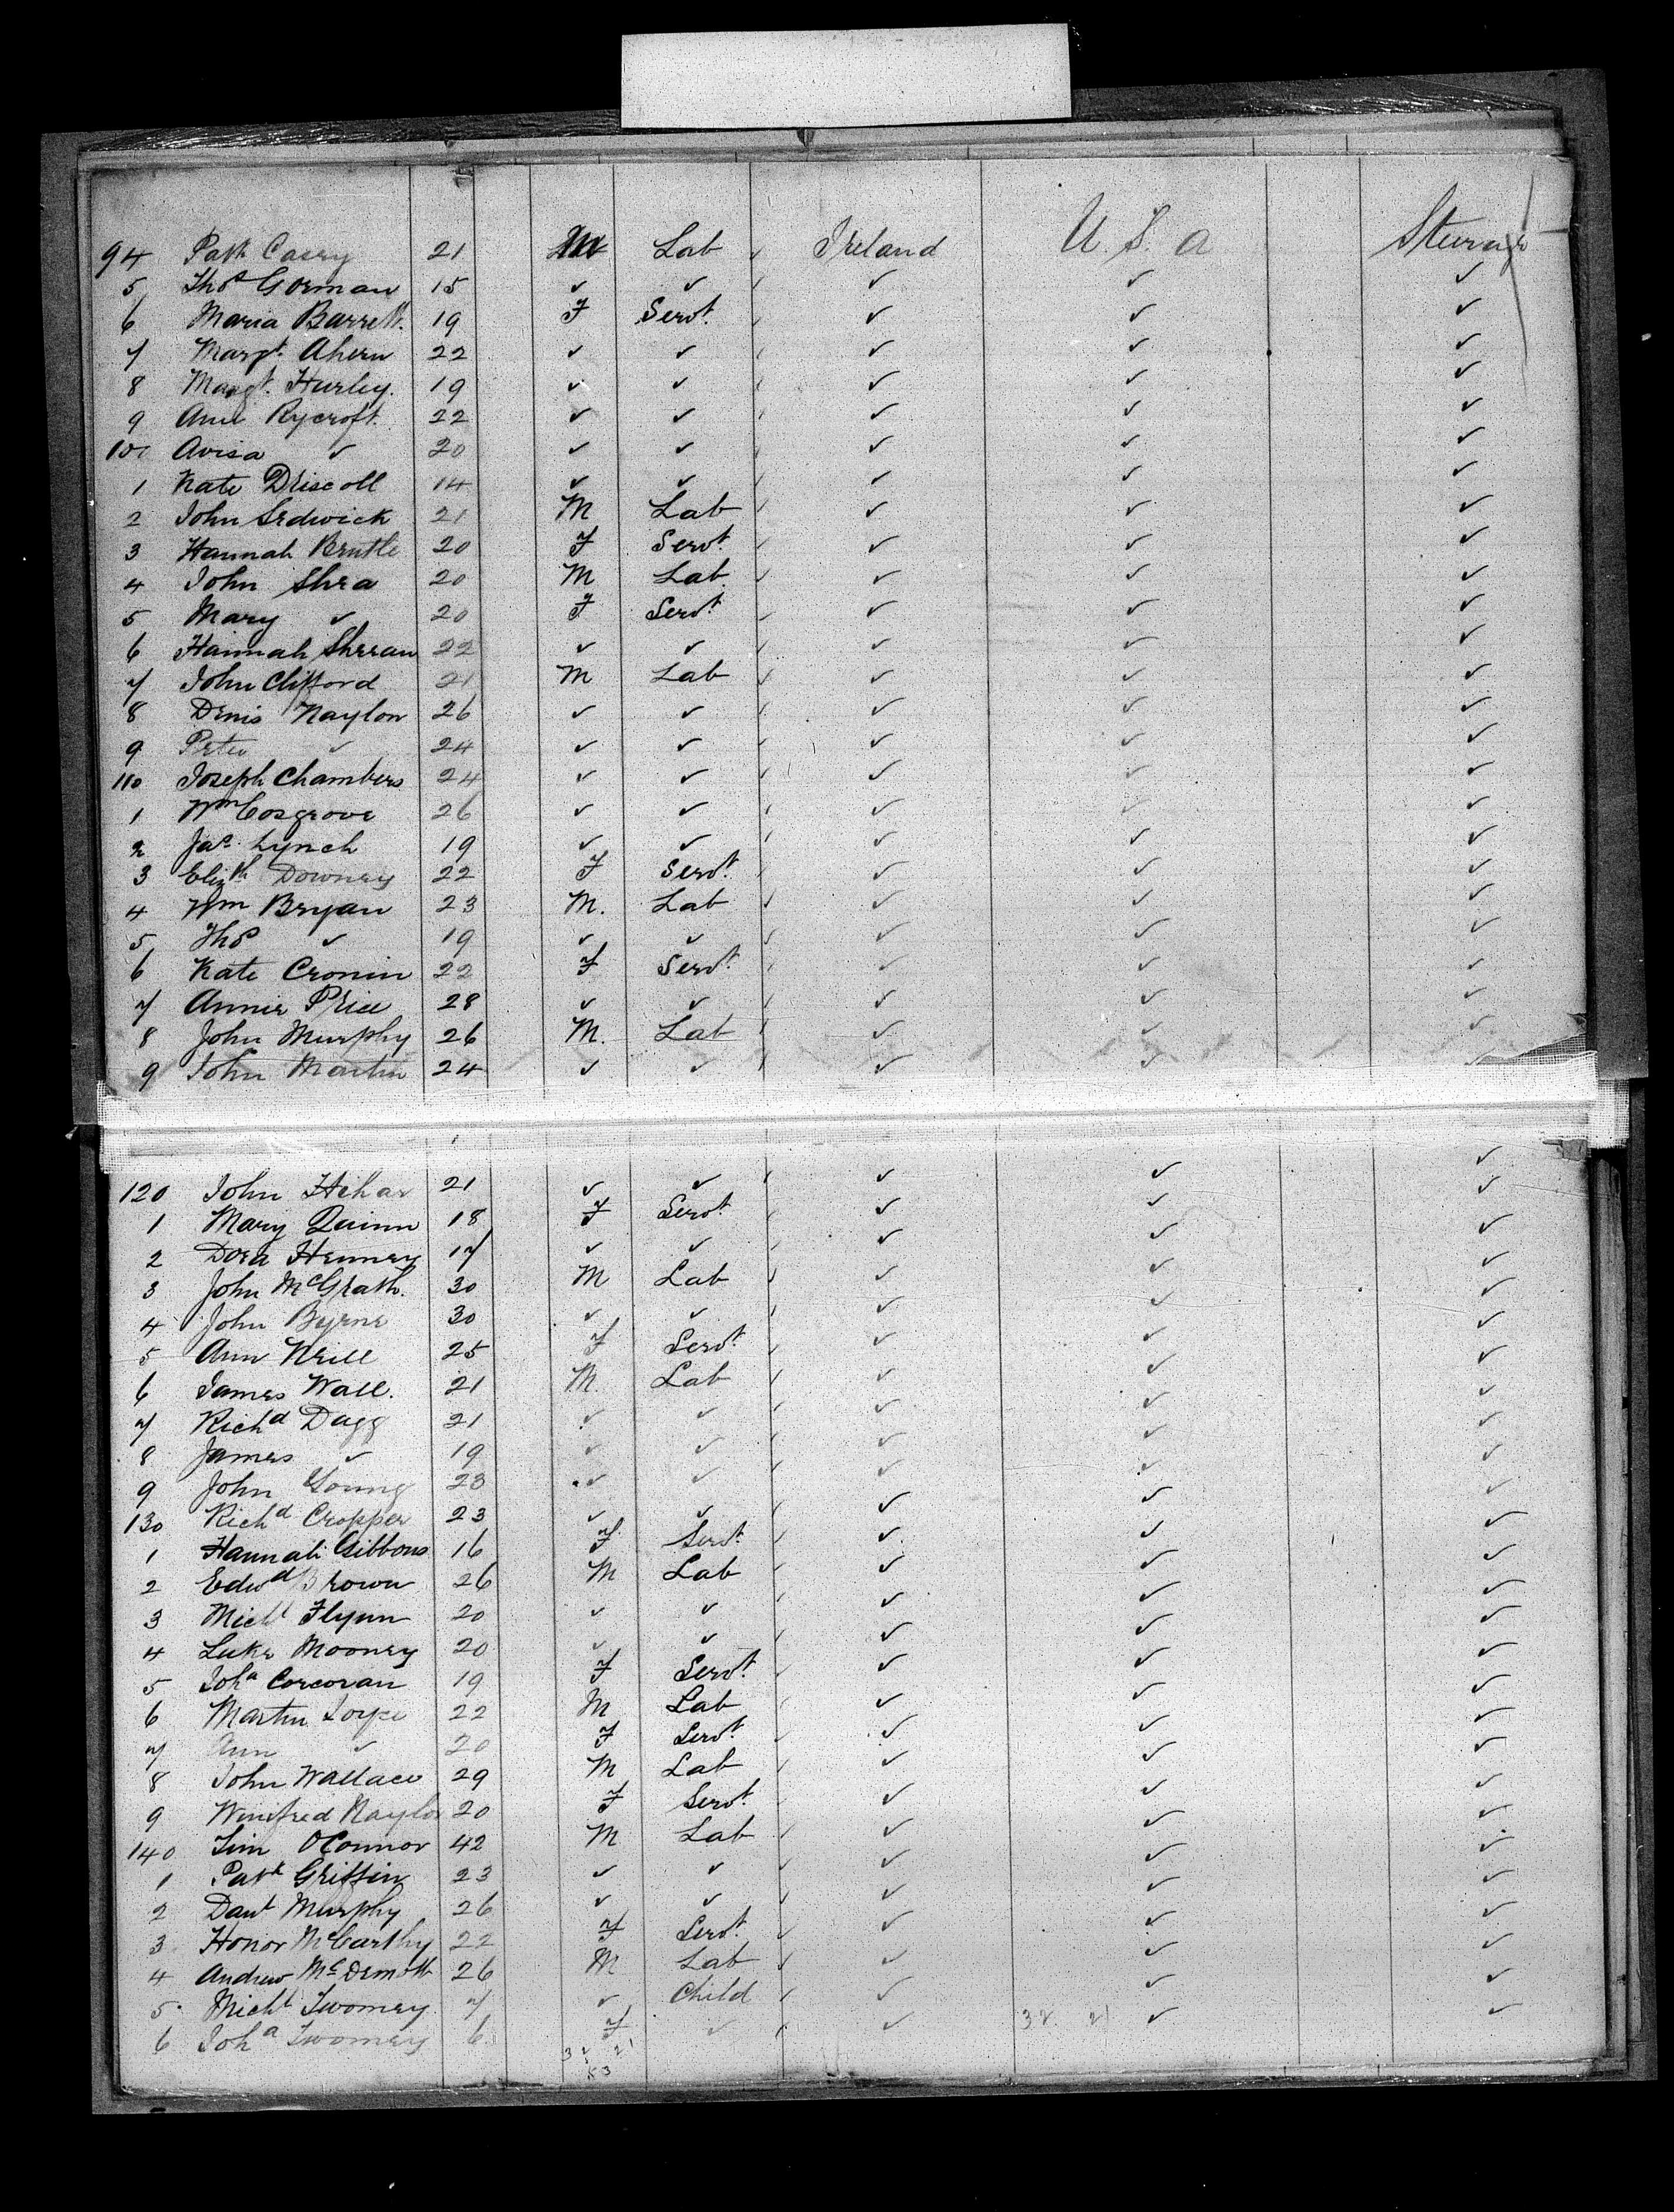 94 Patk Casey 21 M Lab Ireland U. S. a Steerage
5 Thos Gorman 15 ✓ ✓ ✓ ✓ ✓
6 Maria Barrett. 19 F Servt. ✓ ✓ ✓
7 Margt. Ahern 22 ✓ ✓ ✓ ✓ ✓
8 Margt. Hurley. 19 ✓ ✓ ✓ ✓ ✓
9 Ann Rycroft. 22 ✓ ✓ ✓ ✓ ✓
100 Avisa ✓ 20 ✓ ✓ ✓ ✓ ✓
1 Kate Driscoll 14 ✓ ✓ ✓ ✓ ✓
2 John Sedwick 21 M Lab ✓ ✓ ✓
3 Hannah 20 F Servt. ✓ ✓ ✓
4 John Shea 20 M Lab ✓ ✓ ✓
5 Mary ✓ 20 F Servt. ✓ ✓ ✓
6 Hannah Sheean 22 ✓ ✓ ✓ ✓ ✓
7 John Clifford 21 M Lab ✓ ✓ ✓
8 Denis Naylon 26 ✓ ✓ ✓ ✓ ✓
9 Peter ✓ 24 ✓ ✓ ✓ ✓ ✓
110 Joseph Chambers 24 ✓ ✓ ✓ ✓ ✓
1 Wm Cosgrove 26 ✓ ✓ ✓ ✓ ✓
2 Jas. Lynch 19 ✓ ✓ ✓ ✓ ✓
3 Elizth Downey 22 F Servt. ✓ ✓ ✓
4 Wm Bryan 23 M. Lab ✓ ✓ ✓
5 Thos ✓ 19 ✓ ✓ ✓ ✓ ✓
6 Kate Cronin 22 F Servt. ✓ ✓ ✓
7 Annie Price 28 ✓ ✓ ✓ ✓ ✓
8 John Murphy 26 M. Lab ✓ ✓ ✓
9 John Martin 24 ✓ ✓ ✓ ✓ ✓
120 John Hehar 21 ✓ ✓ ✓ ✓ ✓
1 Mary Quinn 18 F Servt. ✓ ✓ ✓
2 Dora Henney 17 ✓ ✓ ✓ ✓ ✓
3 John McGrath. 30 M Lab ✓ ✓ ✓
4 John Byrne 30 ✓ ✓ ✓ ✓ ✓
5 Ann Neill 25 F Servt. ✓ ✓ ✓
6 James Wall. 21 M. Lab ✓ ✓ ✓
7 Richd Dagg 21 ✓ ✓ ✓ ✓ ✓
8 James ✓ 19 ✓ ✓ ✓ ✓ ✓
9 John Young 23 ✓ ✓ ✓ ✓ ✓
130 Richd Cropper 23 ✓ ✓ ✓ ✓ ✓
1 Hannah Gibbons 16 F Servt. ✓ ✓ ✓
2 Edwd Brown 26 M Lab ✓ ✓ ✓
3 Michl Flynn 20 ✓ ✓ ✓ ✓ ✓
4 Luke Mooney 20 ✓ ✓ ✓ ✓ ✓
5 Joha Corcoran 19 F Servt. ✓ ✓ ✓
6 Martin Joyce 22 M Lab ✓ ✓ ✓
7 Ann ✓ 20 F Servt. ✓ ✓ ✓
8 John Wallace 29 M Lab ✓ ✓ ✓
9 Winifred Naylon 20 F Servt. ✓ ✓ ✓
140 Tim OConnor 42 M Lab ✓ ✓ ✓
1 Patk Griffin 23 ✓ ✓ ✓ ✓ ✓
2 Danl Murphy 26 ✓ ✓ ✓ ✓ ✓
3 Honor McCarthy 22 F Servt. ✓ ✓ ✓
4 Andrew McDermott 26 M Lab ✓ ✓ ✓
5 Michl Twomey 7 ✓ Child ✓ ✓ ✓
6 Joha Twomey 6 F ✓ ✓ ✓ ✓